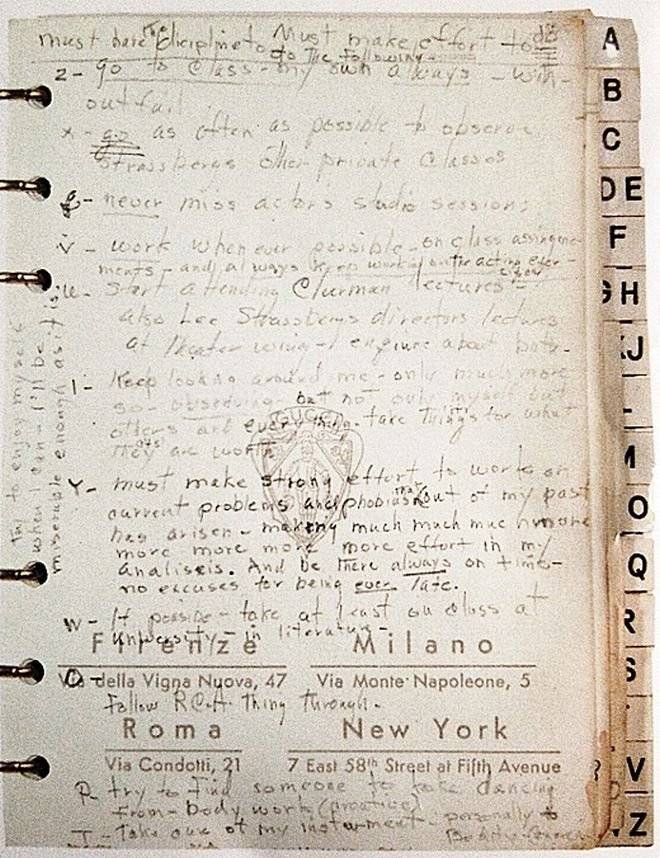 must have the dicipline to Must make effort to do
do the following -
z - go to class - my own always - with-
out fail
x - go as often as possible to observe
Strassbergs other private classes
g - never miss actor's studio sessions
v - work whenever possible - on class assingme-
ments - and always keep working on the acting exer-
cises
u - Start attending Clurman lectures -
also Lee Strassbergs directors lectures
at theater wing - enquire about both -
l - Keep looking around me - only much more
so - observing - but not only myself but
others and everything - take things for what
they are worth
Y - must make strong effort to work on
current problems and phobias that out of my past
has arisen - making much much much more
more more more more more effort in my
analisis. And be there always on time -
no excuses for being ever late.
w - If possible - take at least one class at
university - in literature -
O - Follow RCA thing through.
P - try to find someone to take dancing
from - body work (practice)
T - Take care of my instrument - personally &
try to enjoy myself
when I can - I'll be
miserable enough as it is.
GUCCI
Firenze
Via della Vigna Nuova, 47
Milano
Via Monte Napoleone, 5
Roma
Via Condotti, 21
New York
7 East 58th Street at Fifth Avenue
A
B
C
DE
F
GH
IJ
O
Q
R
S
V
Z